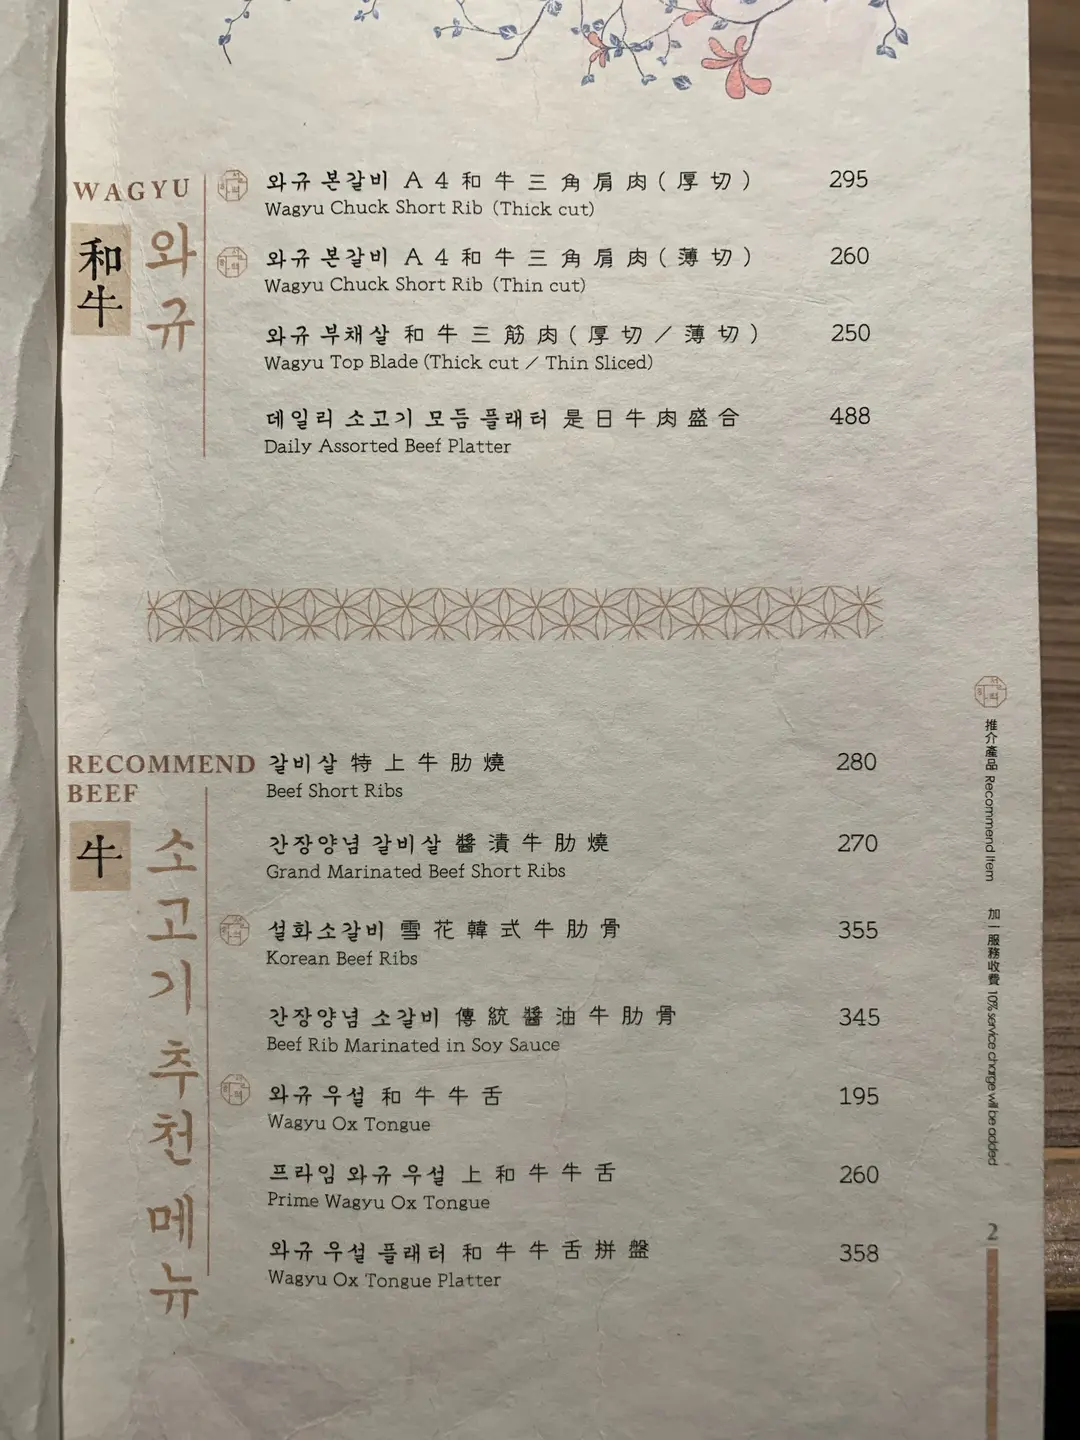 WAGYU
和牛
와규
와규 본갈비 A4和牛三角肩肉(厚切) 295
Wagyu Chuck Short Rib (Thick cut)
와규 본갈비 A4和牛三角肩肉(薄切) 260
Wagyu Chuck Short Rib (Thin cut)
와규 부채살 和牛三筋肉(厚切/薄切) 250
Wagyu Top Blade (Thick cut / Thin Sliced)
데일리 소고기 모듬 플래터 是日牛肉盛合 488
Daily Assorted Beef Platter
RECOMMEND
BEEF
牛
소고기추천 메뉴
갈비살 特上牛肋燒 280
Beef Short Ribs
간장양념 갈비살 醬漬牛肋燒 270
Grand Marinated Beef Short Ribs
설화소갈비 雪花韓式牛肋骨 355
Korean Beef Ribs
간장양념 소갈비 傳統醬油牛肋骨 345
Beef Rib Marinated in Soy Sauce
와규 우설 和牛牛舌 195
Wagyu Ox Tongue
프라임 와규 우설 上和牛牛舌 260
Prime Wagyu Ox Tongue
와규 우설 플래터 和牛牛舌拼盤 358
Wagyu Ox Tongue Platter
推介產品 Recommend Item
加一服務收費 10% service charge will be added
2